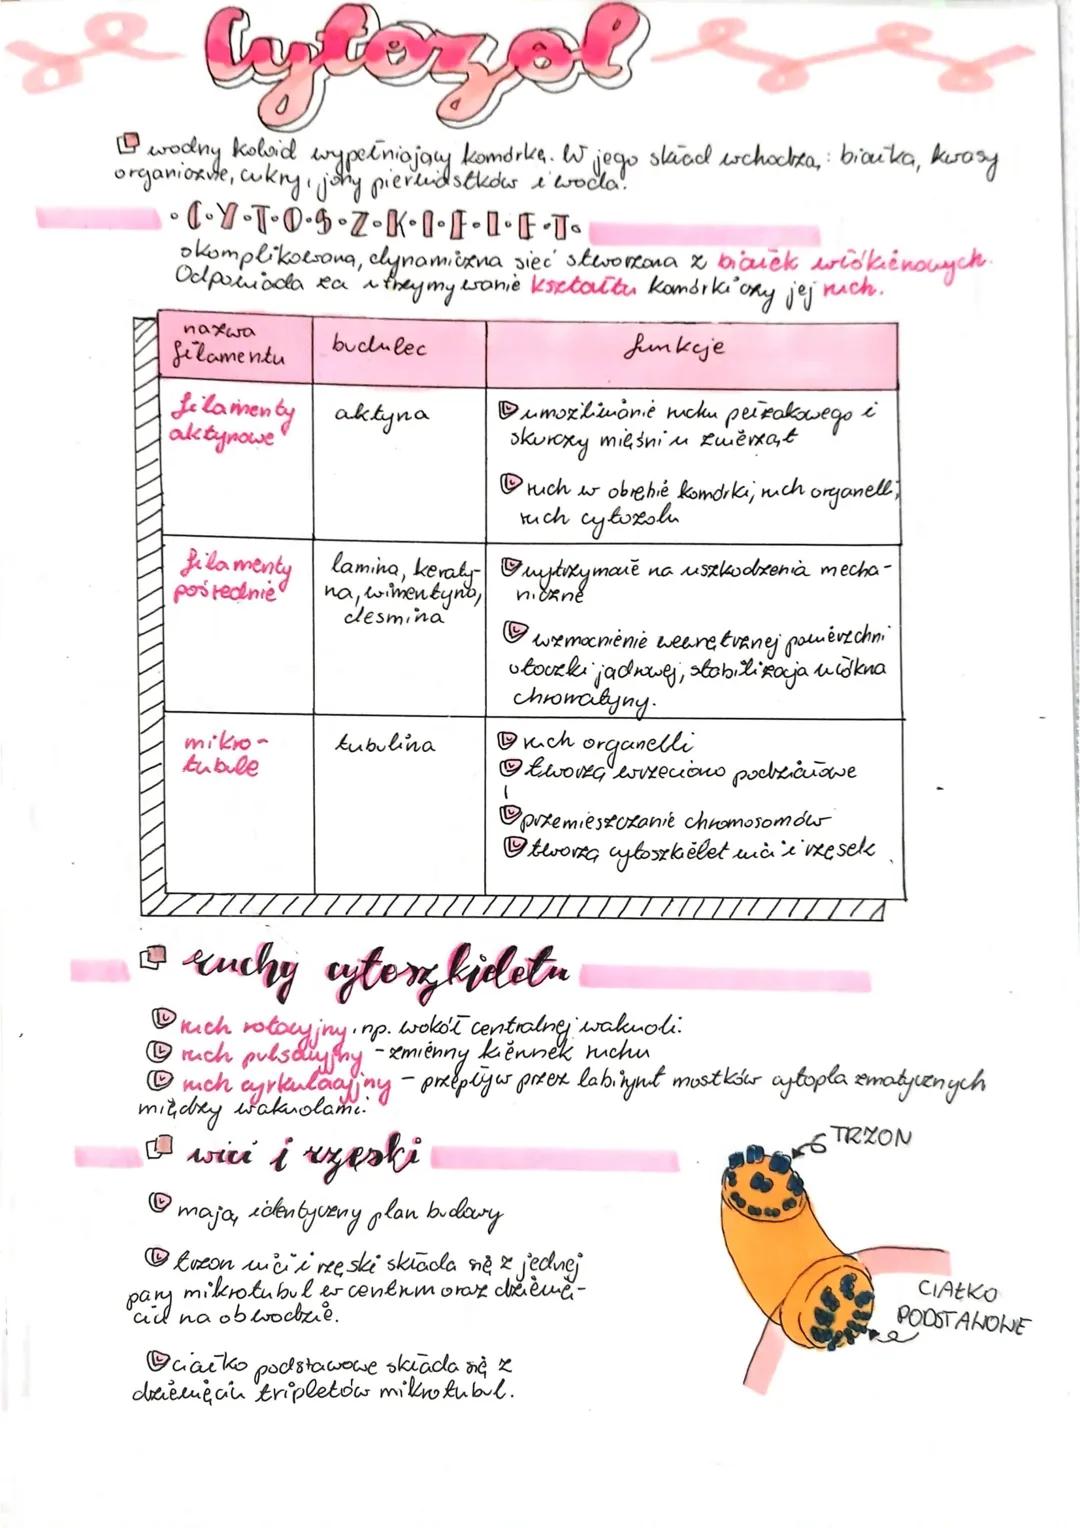 Cytozol
wodny koloid wypełniający komórkę. W jego skład wchodzą: białka, kwasy
organiczne, cukry, jony pierwiastków i woda.
•C•Y•T•O•S•Z•K•I•E•L•E•T•
skomplikowana, dynamiczna sieć stworzona z białek włókienowych.
Odpowiada za utrzymywanie kształtu komórki czy jej ruch.
nazwa
filamentu
budulec
funkcje
filamenty
aktynowe
aktyna
umożliwianie ruchu pełzakowego i
skurczy mięśni u zwierząt
ruch w obrębie komórki, ruch organelli,
ruch cytozolu
filamenty
pośrednie
lamina, keraty-
na, wimentyna,
desmina
wytrzymałe na uszkodzenia mecha-
niczne
wzmocnienie wewnętrznej powierzchni
otoczki jądrowej, stabilizacja włókna
chromatyny.
mikro-
tubule
tubulina
ruch organelli
tworzą wrzeciono podziałowe
przemieszczanie chromosomów
tworzą cytoszkielet wici i rzęsek
ruchy cytoszkieletu
ruch rotacyjny, np. wokół centralnej wakuoli.
ruch pulsacyjny - zmienny kierunek ruchu
ruch cyrkulacyjny - przepływ przez labirynt mostków cytoplazmatycznych
między wakuolami.
wici i rzęski
mają identyczny plan budowy
trzon wici i rzęski składa się z jednej
pary mikrotubul w centrum oraz dziewię-
ciu na obwodzie.
ciałko podstawowe składa się z
dziewięciu tripletów mikrotubul.
TRZON
CIAŁKO
PODSTAWOWE